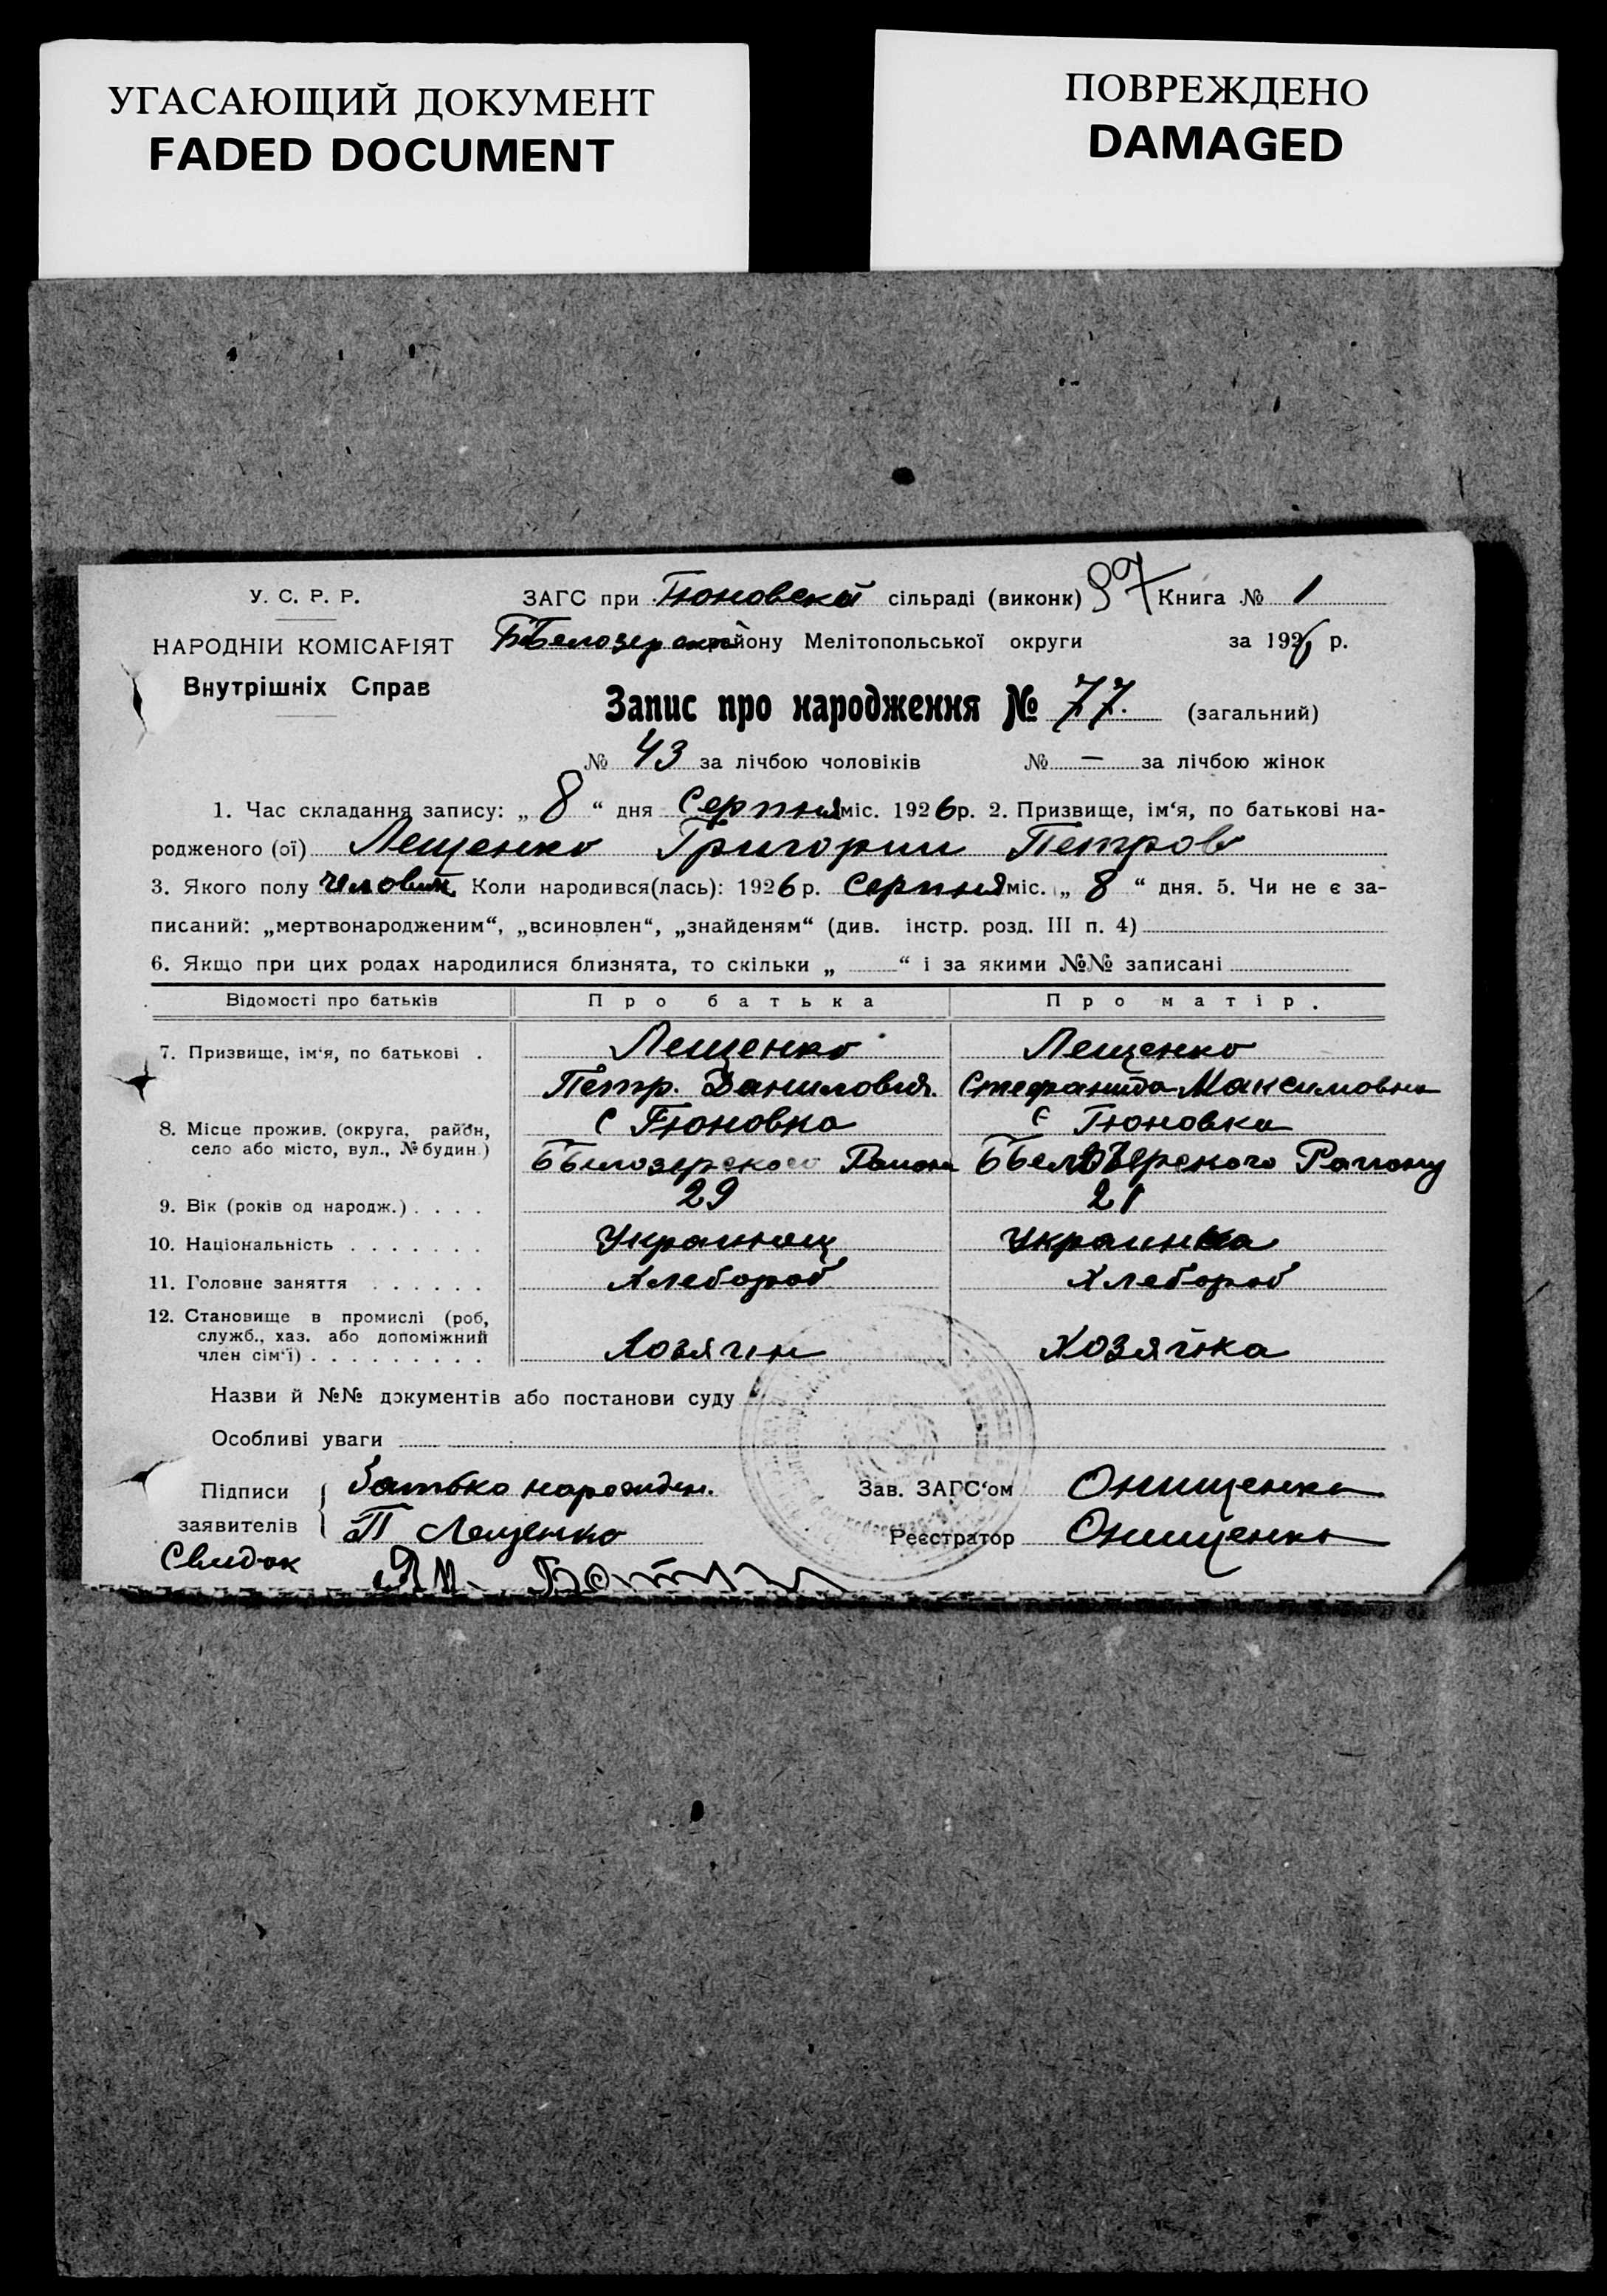 УГАСАЮЩИЙ ДОКУМЕНТ
FADED DOCUMENT
ПОВРЕЖДЕНО
DAMAGED
У. С. Р. Р.
НАРОДНІЙ КОМІСАРІЯТ
Внутрішніх Справ
ЗАГС при Тюновской сільраді (виконк) 97 Книга № 1
ББелозерский району Мелітопольської округи за 1926 р.
Запис про народження № 77. (загальний)
№ 43 за лічбою чоловіків № — за лічбою жінок
1. Час складання запису: „ 8 “ дня Серпня міс. 1926 р. 2. Призвище, ім‘я, по батькові на-
родженого (ої) Лещенко Григории Петров
3. Якого полу человік. Коли народився(лась): 1926 р. Серпня міс. „ 8 “ дня. 5. Чи не є за-
писаний: „мертвонародженим“, „всиновлен“, „знайденям“ (див. інстр. розд. III п. 4)
6. Якщо при цих родах народилися близнята, то скільки „ “ і за якими №№ записані
Відомості про батьків Про батька Про матір.
7. Призвище, ім‘я, по батькові . Лещенко Лещенко
Петр. Данилович. Стефанида Максимовна
8. Місце прожив. (округа, район, село або місто, вул., № будин.) С Тюновка С Тюновка
ББелозерского Района ББелозерского Району
9. Вік (років од народж.) . . . . 29 21
10. Національність . . . . . . . Украинец Украинка
11. Головне заняття . . . . . . Хлебороб Хлебороб
12. Становище в промислі (роб,
служб., хаз. або допоміжний
член сім‘ї) . . . . . . . . . Хозяин Хозяйка
Назви й №№ документів або постанови суду
Особливі уваги
Підписи заявителів батько нарожден. Зав. ЗАГС‘ом Онищенко
П Лещенко Реєстратор Онищенко
Свидок